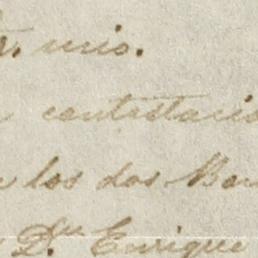 mio.
contestacio
los dos Ban
D.ⁿ Enrique